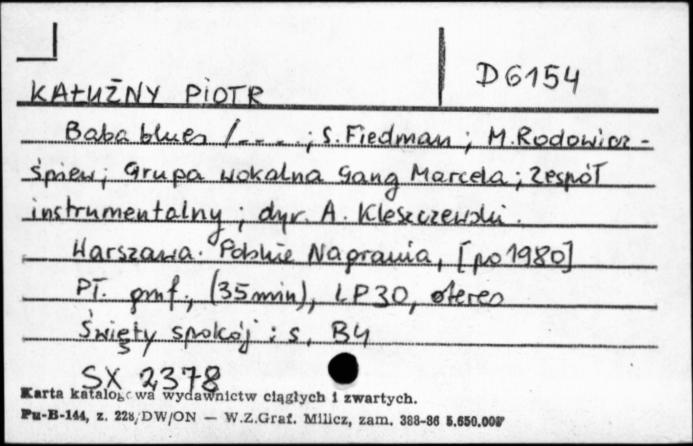 D6154
KAŁUŻNY PIOTR
Baba blues / _ _ _ _ ; S. Fiedman ; M. Rodowicz -
śpiew ; Grupa wokalna Gang Marcela ; Zespół
instrumentalny ; dyr. A. Kleszczewski .
Warszawa. Polskie Nagrania, [po 1980]
Pł. gmf., (35 min), LP 30, stereo
Święty spokój : s, B4
SX 2378
Karta katalogowa wydawnictw ciągłych i zwartych.
Pu-B-144, z. 228/DW/ON — W.Z.Graf. Milicz, zam. 388-86 5.650.000